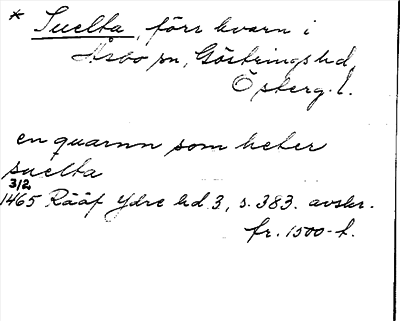 * Suelta, förr kvarn i
Åsbo sn, Göstrings hd,
Österg. l.
en quarnn som heter
suelta
3/2
1465 Rääf Ydre hd 3, s. 383. avskr.
fr. 1500-t.